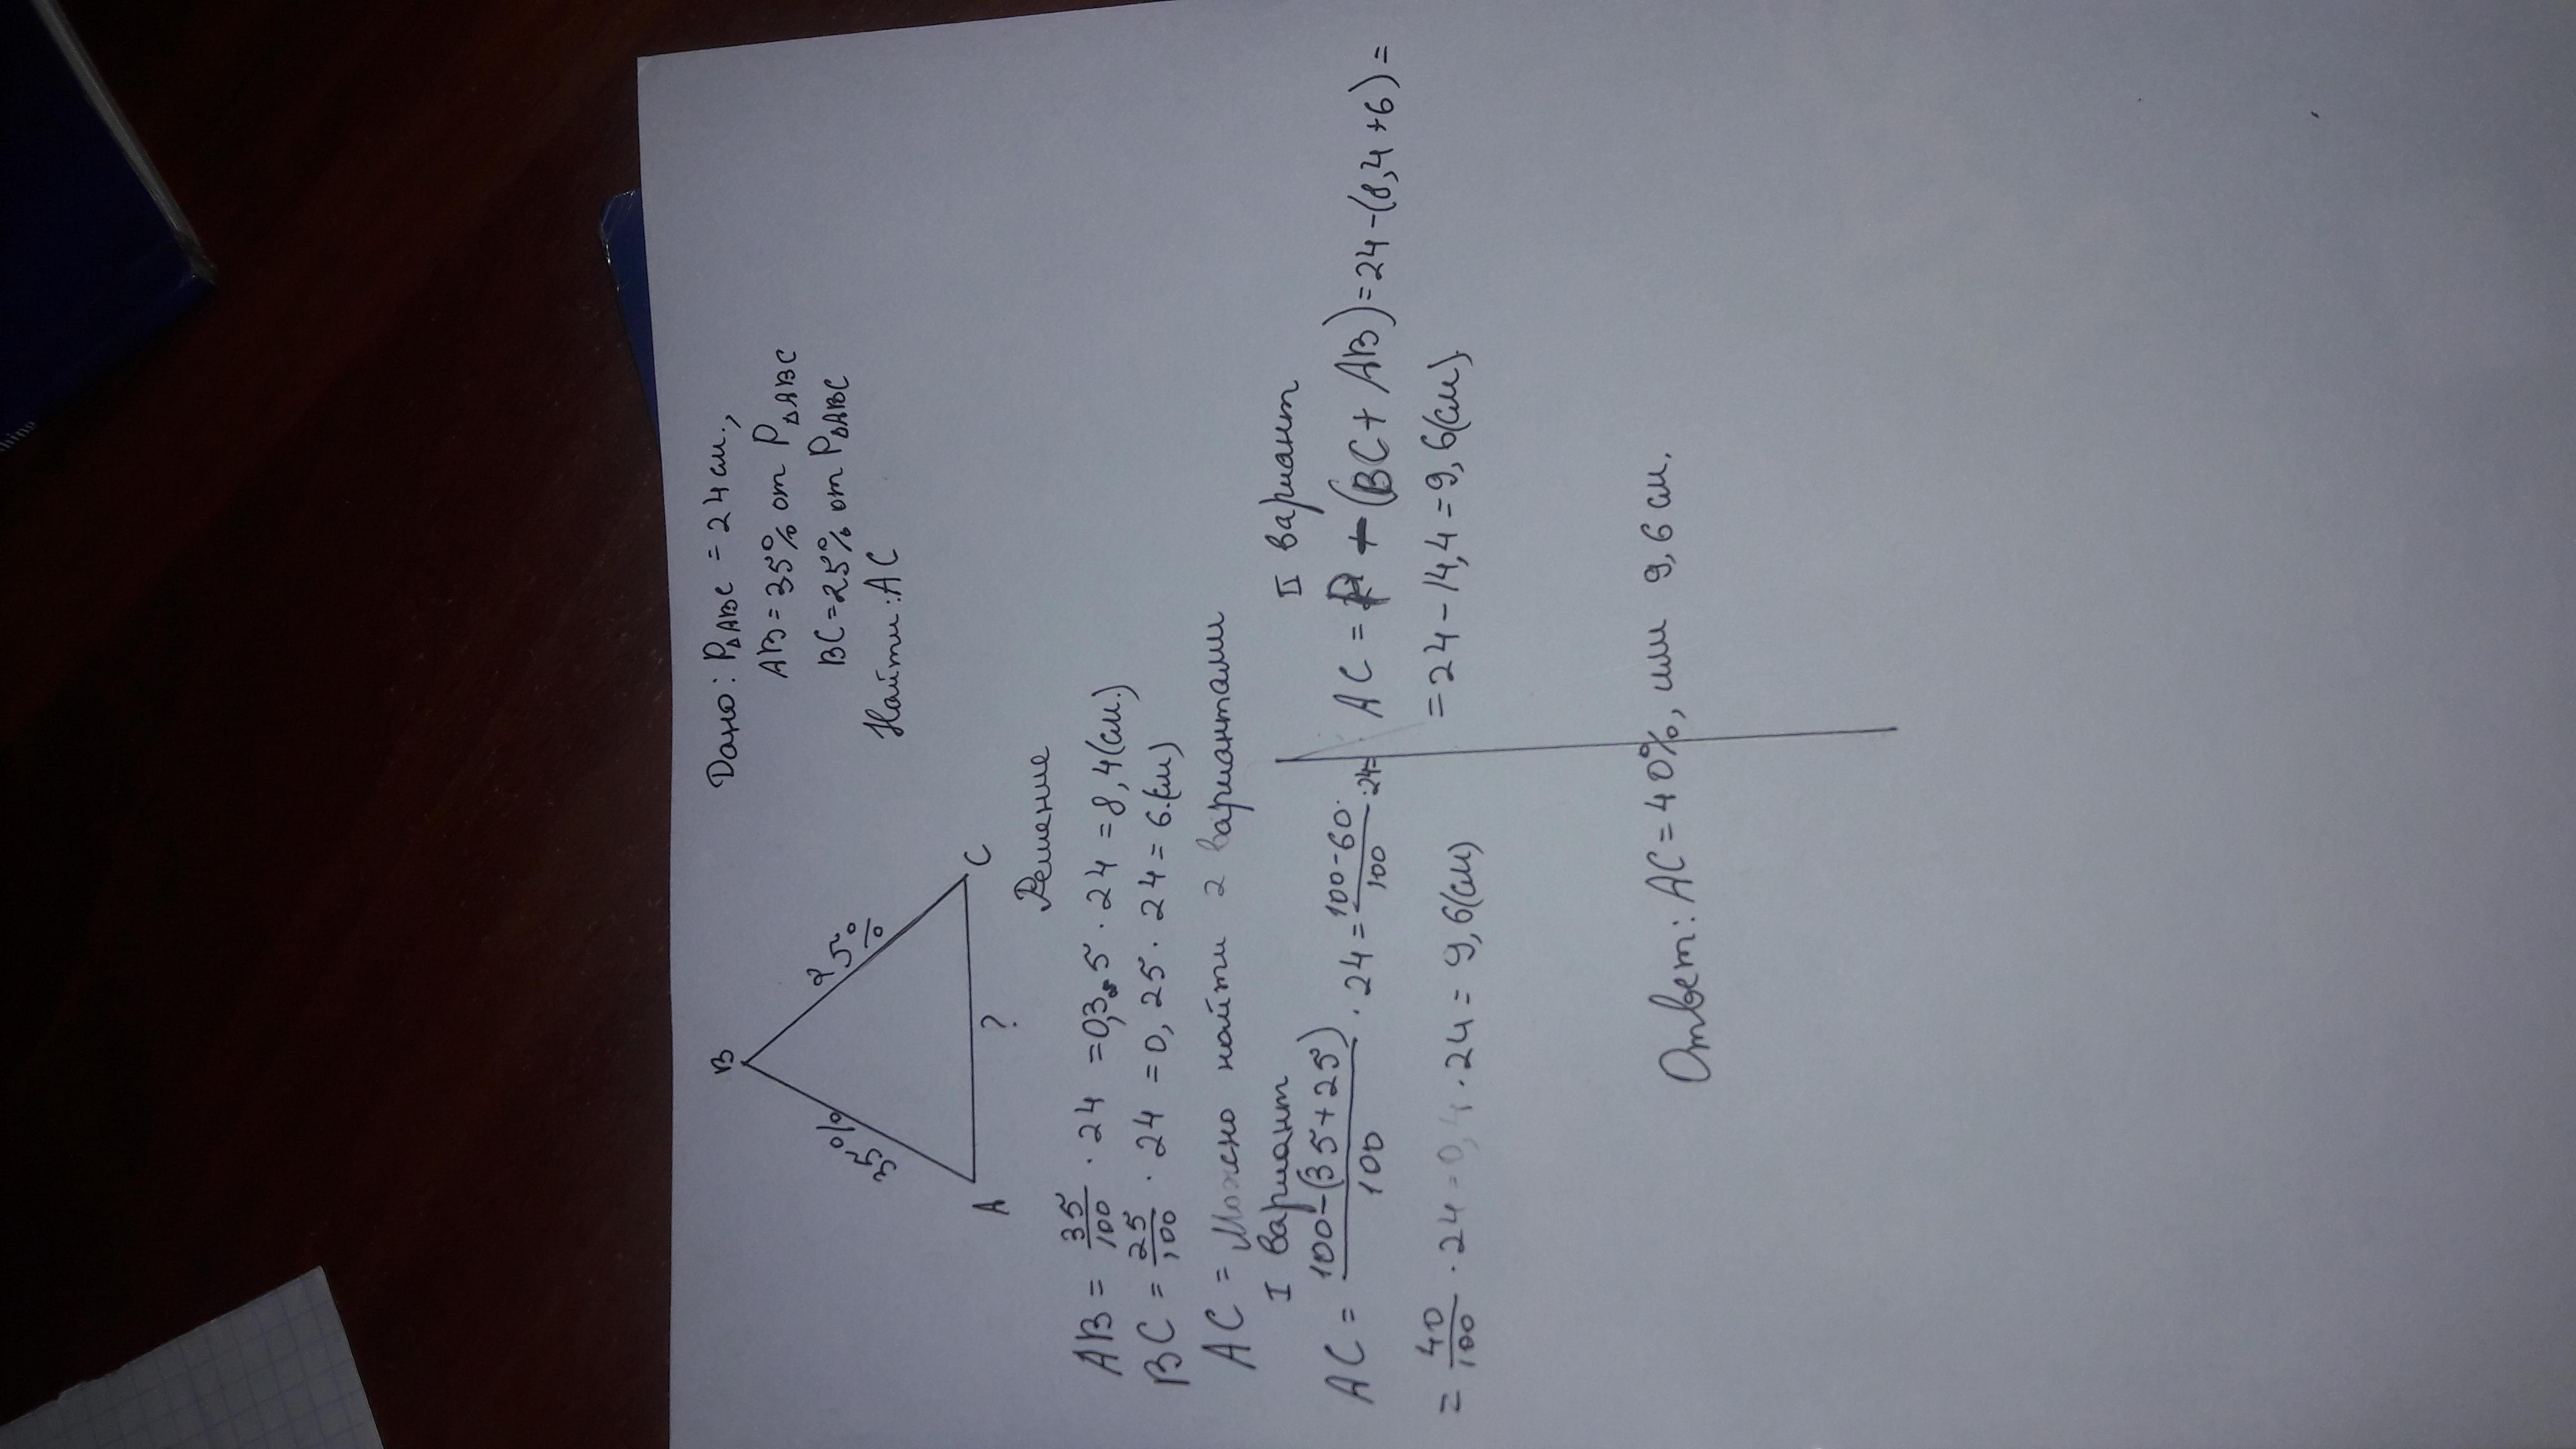 Дано: P△ABC = 24 см.,
AB = 35% от P△ABC
BC = 25% от P△ABC
Найти: AC
B
35%
25%
A
?
C
Решение
AB = 35/100 · 24 = 0,35 · 24 = 8,4 (см.)
BC = 25/100 · 24 = 0,25 · 24 = 6 (см)
AC = Можно найти 2 вариантами
I вариант
AC = (100-(35+25))/100 · 24 = (100-60)/100 · 24 =
= 40/100 · 24 = 0,4 · 24 = 9,6 (см)
II вариант
AC = P - (BC + AB) = 24 - (8,4 + 6) =
= 24 - 14,4 = 9,6 (см).
Ответ: AC = 40%, или 9,6 см.